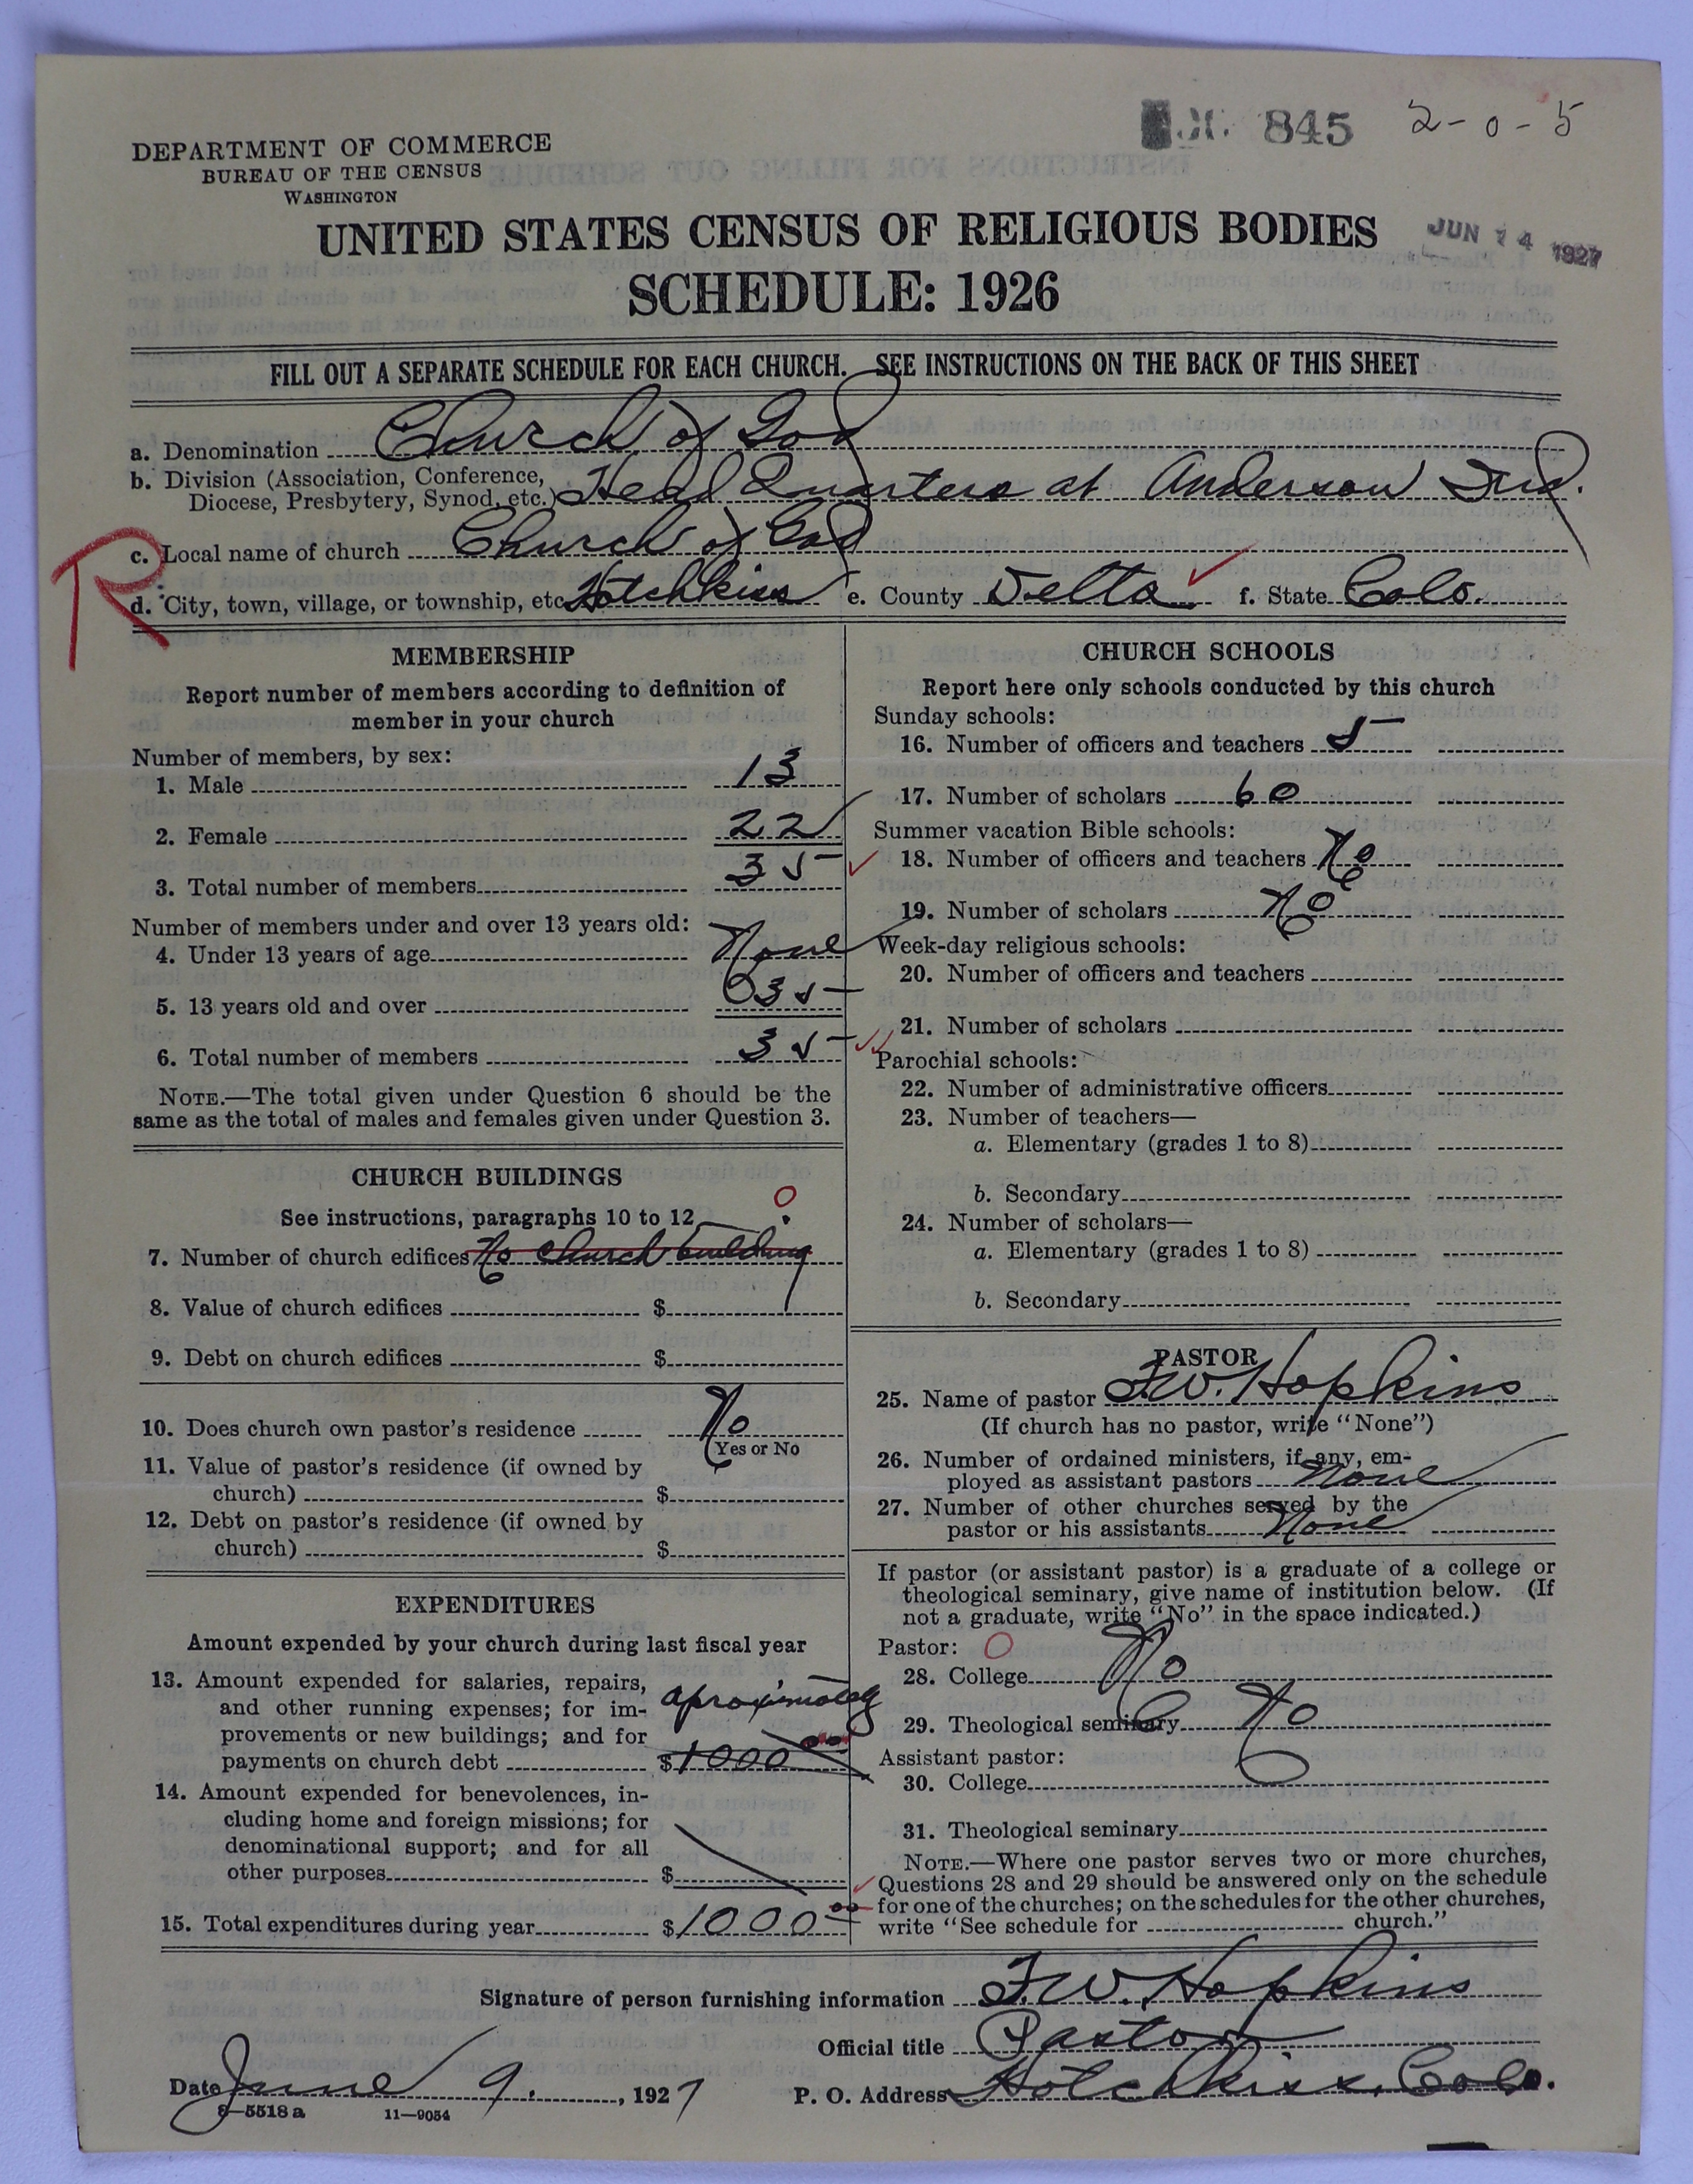 845 2-0-5
DEPARTMENT OF COMMERCE
BUREAU OF THE CENSUS
WASHINGTON
UNITED STATES CENSUS OF RELIGIOUS BODIES
JUN 14 1927
SCHEDULE: 1926
FILL OUT A SEPARATE SCHEDULE FOR EACH CHURCH. SEE INSTRUCTIONS ON THE BACK OF THIS SHEET
a. Denomination Church of God
b. Division (Association, Conference,
Diocese, Presbytery, Synod, etc.) Head Quarters at Anderson Ind.
R
c. Local name of church Church of God
d. City, town, village, or township, etc. Hotchkiss e. County Delta f. State Colo.
MEMBERSHIP
Report number of members according to definition of
member in your church
Number of members, by sex:
1. Male 13
2. Female 22
3. Total number of members 35
Number of members under and over 13 years old:
4. Under 13 years of age None
5. 13 years old and over 35
6. Total number of members 35
NOTE.—The total given under Question 6 should be the
same as the total of males and females given under Question 3.
CHURCH BUILDINGS
See instructions, paragraphs 10 to 12
0
7. Number of church edifices No church building
8. Value of church edifices $
9. Debt on church edifices $
10. Does church own pastor's residence No
Yes or No
11. Value of pastor's residence (if owned by
church) $
12. Debt on pastor's residence (if owned by
church) $
EXPENDITURES
Amount expended by your church during last fiscal year
13. Amount expended for salaries, repairs,
and other running expenses; for im- aproximately
provements or new buildings; and for
payments on church debt $1000 00
14. Amount expended for benevolences, in-
cluding home and foreign missions; for
denominational support; and for all
other purposes $
15. Total expenditures during year $1000 00
CHURCH SCHOOLS
Report here only schools conducted by this church
Sunday schools:
16. Number of officers and teachers 5
17. Number of scholars 60
Summer vacation Bible schools:
18. Number of officers and teachers No
19. Number of scholars No
Week-day religious schools:
20. Number of officers and teachers
21. Number of scholars
Parochial schools:
22. Number of administrative officers
23. Number of teachers—
a. Elementary (grades 1 to 8)
b. Secondary
24. Number of scholars—
a. Elementary (grades 1 to 8)
b. Secondary
PASTOR
25. Name of pastor F.W. Hopkins
(If church has no pastor, write "None")
26. Number of ordained ministers, if any, em-
ployed as assistant pastors None
27. Number of other churches served by the
pastor or his assistants None
If pastor (or assistant pastor) is a graduate of a college or
theological seminary, give name of institution below. (If
not a graduate, write "No" in the space indicated.)
Pastor: 0
28. College No
29. Theological seminary No
Assistant pastor:
30. College
31. Theological seminary
NOTE.—Where one pastor serves two or more churches,
Questions 28 and 29 should be answered only on the schedule
for one of the churches; on the schedules for the other churches,
write "See schedule for church."
Signature of person furnishing information F.W. Hopkins
Official title Pastor
Date June 9, 1927 P. O. Address Hotchkiss, Colo.
8—5518 a 11—9054